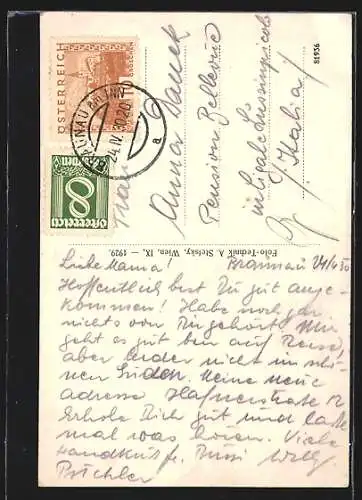 ÖSTERREICH
10
GROSCHEN
BRAUNAU AM INN
24.IV.30.20
a
8
Österreich
Groschen
Frau
Anna
Pension Bellevue
in
Italia
81936
Foto-Technik A Stefsky, Wien, IX. — 1929.
Liebe Mama! Braunau 24/4 30
Hoffentlich bist Du gut ange-
kommen! Habe noch gar
nichts von Dir gehört. Mir
geht es gut bin auf Reise,
aber leider nicht im schö-
nen Süden. Meine neue
adresse Hafnerstraße 12
Erhole Dich gut und lasse
mal was hören. Viele
Handküsse Willy
Pichler